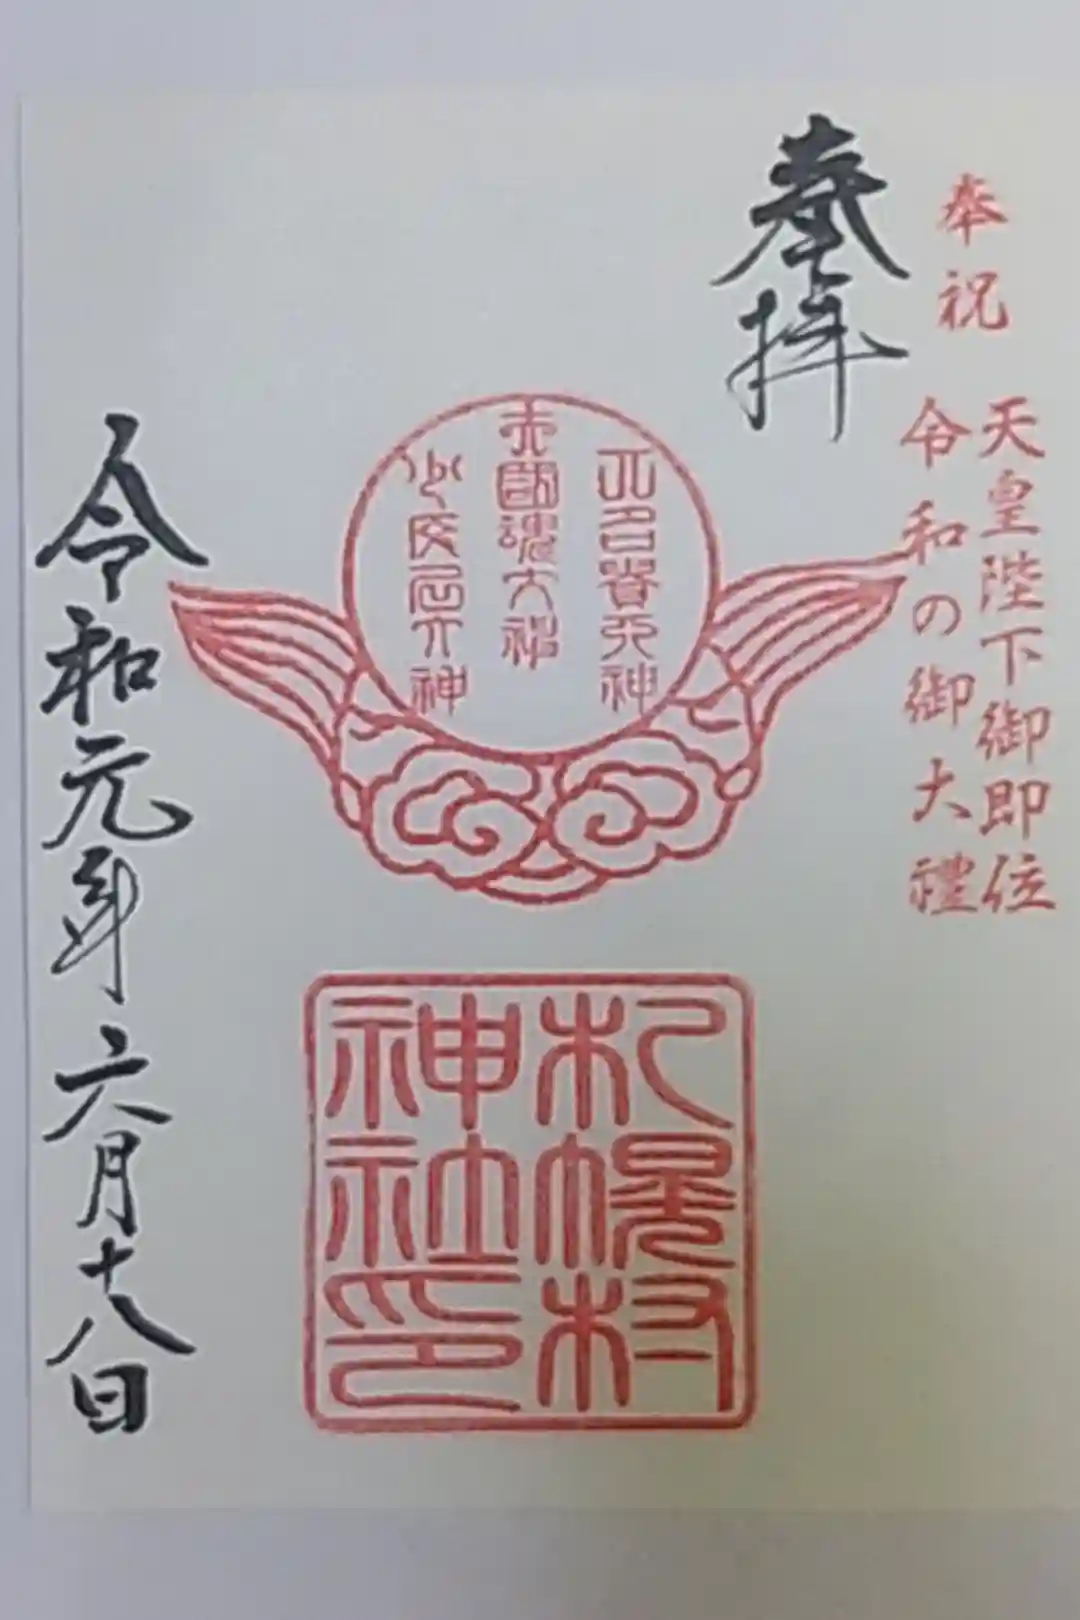 奉祝
天皇陛下御即位
令和の御大禮
奉拝
大國魂大神
少彦名大神
札幌村
神社印
令和元年六月十八日